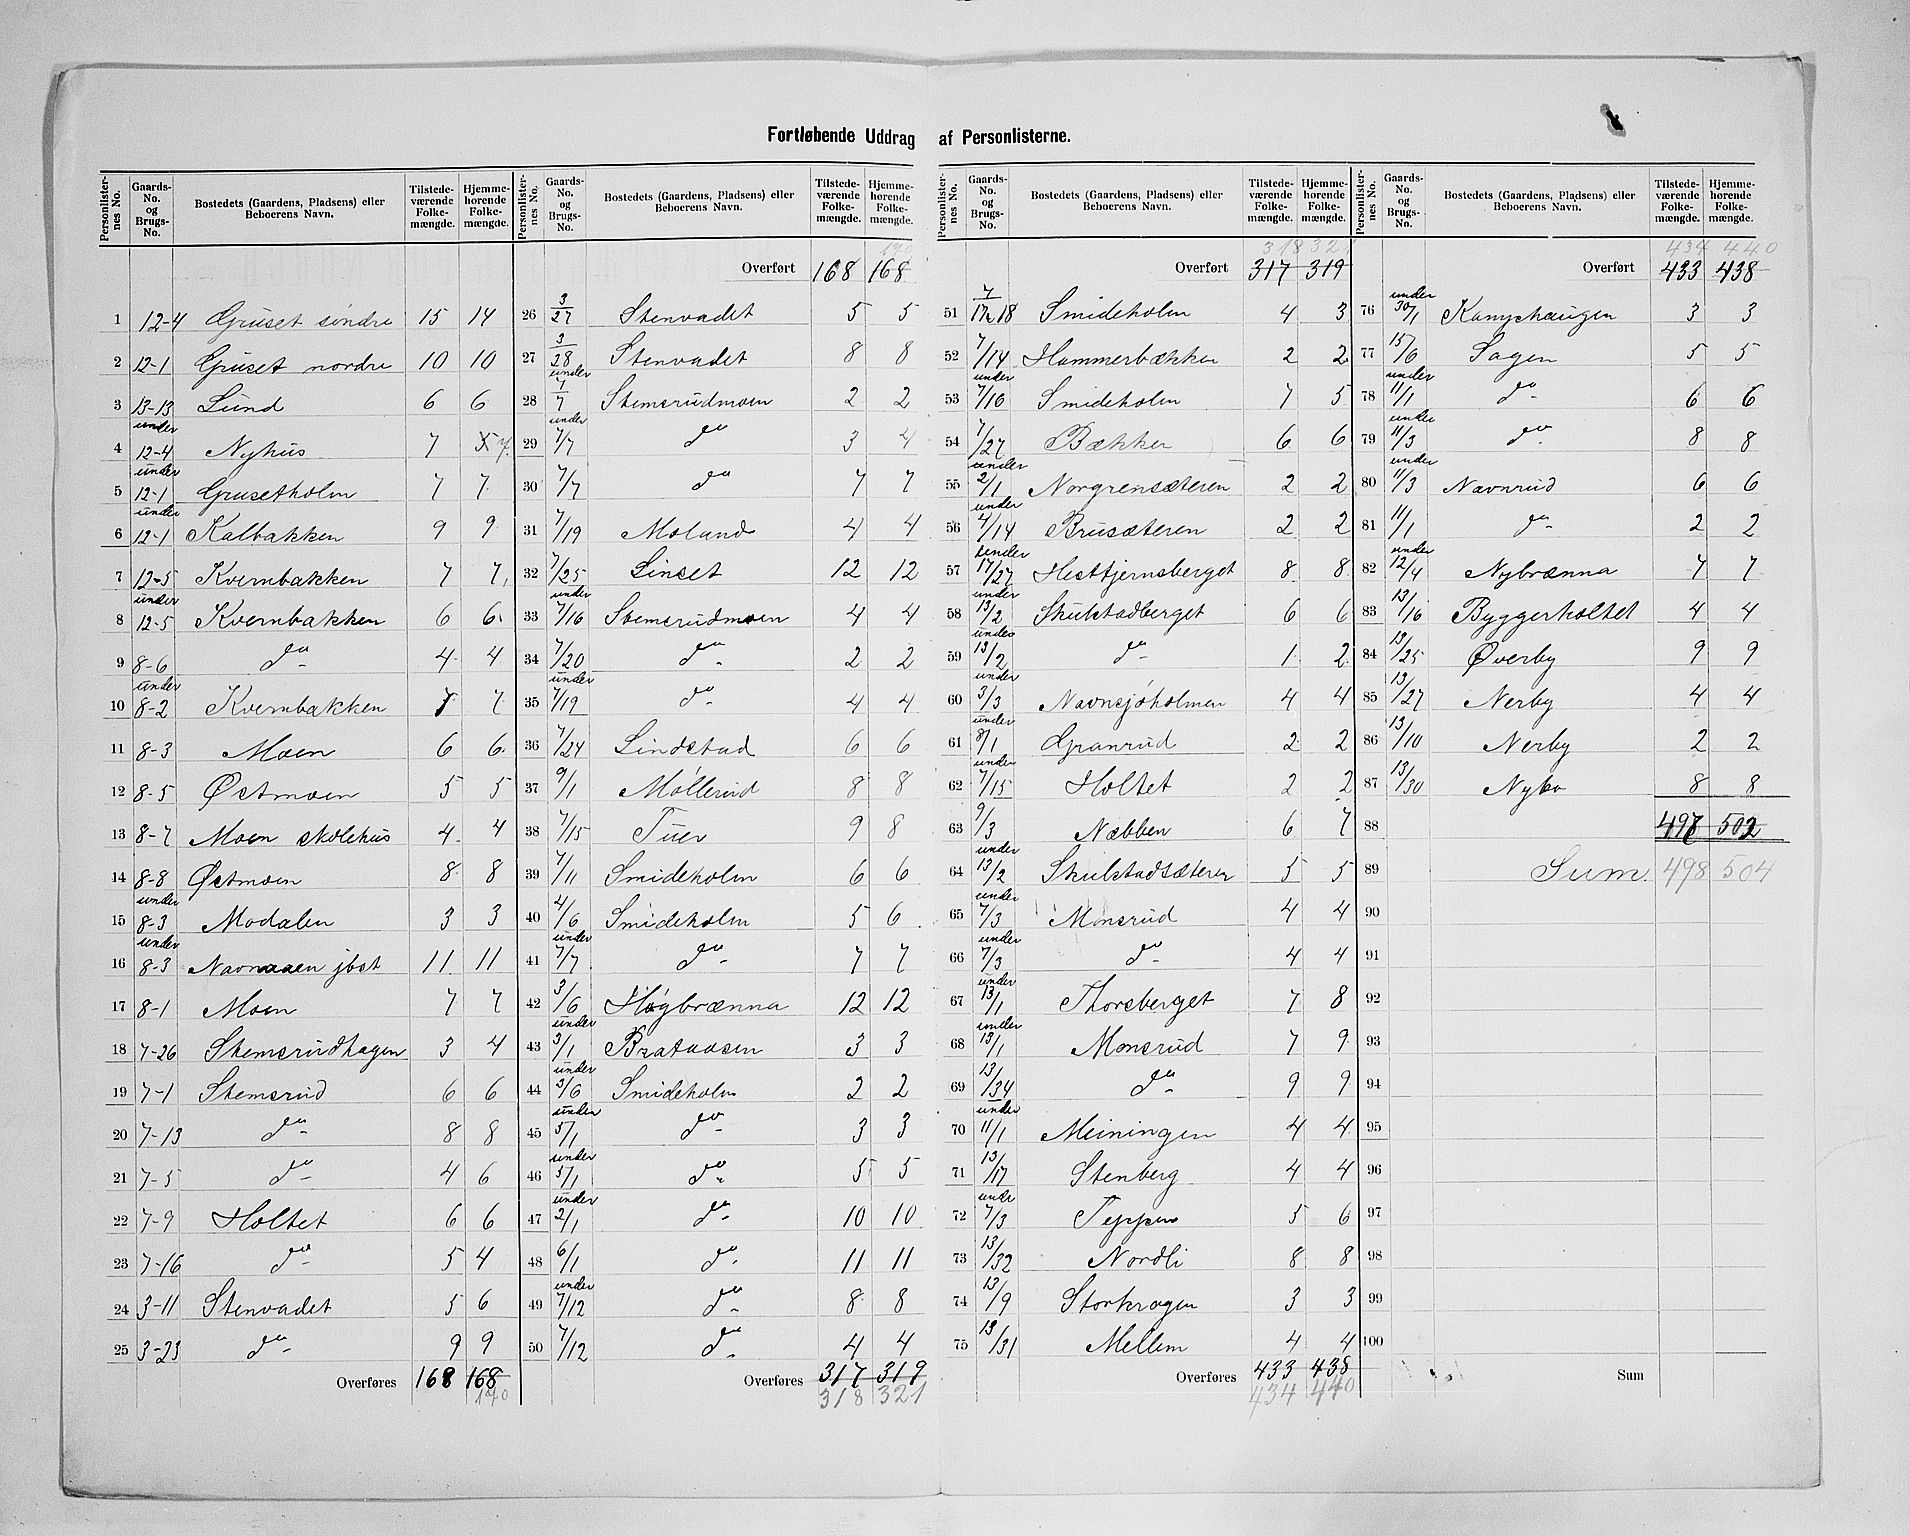 Fortløbende Uddrag af Personlisterne.
Personlisternes No. | Gaards-No. og Brugs-No. | Bostedets (Gaardens, Pladsens) eller Beboerens Navn. | Tilstedeværende Folkemængde. | Hjemmehørende Folkemængde.
1 12-4 Gruset söndre 15 14
2 12-1 Gruset nordre 10 10
3 13-13 Lund 6 6
4 under 12-4 Nyhus 7 5 7.
5 under 12-1 Grusetholm 7 7
6 under 12-1 Kalbakken 9 9
7 12-5 Kvernbakken 7 7
8 under 12-5 Kvernbakken 6 6
9 8-6 do 4 4
10 under 8-2 Kvernbakken 7 7
11 8-3 Moen 6 6
12 8-5 Østmoen 5 5
13 8-7 Moen skolehus 4 4
14 8-8 Østmoen 8 8
15 under 8-3 Modalen 3 3
16 under 8-3 Navnaaen jbst 11 11
17 8-1 Moen 7 7
18 7-26 Stemsrudhagen 3 4
19 7-1 Stemsrud 6 6
20 7-13 do 8 8
21 7-5 do 4 6
22 7-9 Holtet 6 6
23 7-16 do 5 4
24 3-11 Stenvadet 5 6
25 3-23 do 9 9
Overføres 168 168
170
Personlisternes No. | Gaards-No. og Brugs-No. | Bostedets (Gaardens, Pladsens) eller Beboerens Navn. | Tilstedeværende Folkemængde. | Hjemmehørende Folkemængde.
170
Overført 168 168
26 3/27 Stenvadet 5 5
27 3/28 Stenvadet 8 8
28 under 7/7 Stemsrudmoen 2 2
29 under 7/7 do 3 4
30 7/7 do 7 7
31 7/19 Moland 4 4
32 7/25 Linset 12 12
33 under 7/16 Stemsrudmoen 4 4
34 7/20 do 2 2
35 under 7/19 do 4 4
36 7/24 Lindstad 6 6
37 9/1 Möllerud 8 8
38 7/15 Tuer 9 8
39 7/11 Smideholm 6 6
40 4/6 Smideholm 5 6
41 under 7/7 do 7 7
42 3/6 Høgbrænna 12 12
43 under 3/1 Brataasen 3 3
44 under 3/6 Smideholm 2 2
45 under 5/1 do 3 3
46 under 5/1 do 5 5
47 under 2/1 do 10 10
48 6/1 do 11 11
49 under 7/12 do 8 8
50 7/12 do 4 4
Overføres 317 319
318 321
Personlisternes No. | Gaards-No. og Brugs-No. | Bostedets (Gaardens, Pladsens) eller Beboerens Navn. | Tilstedeværende Folkemængde. | Hjemmehørende Folkemængde.
318 32
Overført 317 319
51 7/17, 18 Smideholm 4 3
52 7/14 Hammerbækken 2 2
53 under 7/16 Smideholm 7 5
54 7/27 Bækken 6 6
55 under 2/1 Norgrensæteren 2 2
56 under 4/14 Brusæteren 2 2
57 under 17/27 Hestfjernsberget 8 8
58 under 13/2 Skulstadberget 6 6
59 under 13/2 do 1 2
60 under 3/3 Navnsjøholmen 4 4
61 under 8/1 Granrud 2 2
62 under 7/15 Holtet 2 2
63 9/3 Næbben 6 7
64 under 13/2 Skulstadsæteren 5 5
65 under 7/3 Monsrud 4 4
66 under 7/3 do 4 4
67 under 13/1 Thorsberget 7 8
68 under 13/1 Monsrud 7 9
69 13/34 do 9 9
70 under 11/1 Meiningen 4 4
71 13/17 Stenberg 4 4
72 undr 7/3 Teppen 5 6
73 13/32 Nordli 8 8
74 13/9 Storkragen 3 3
75 13/31 Mellem 4 4
Overføres 433 438
434 440
Personlisternes No. | Gaards-No. og Brugs-No. | Bostedets (Gaardens, Pladsens) eller Beboerens Navn. | Tilstedeværende Folkemængde. | Hjemmehørende Folkemængde.
434 440
Overført 433 438
76 under 30/1 Kampehaugen 3 3
77 15/6 Sagen 5 5
78 under 11/1 do 6 6
79 under 11/3 do 8 8
80 under 11/3 Navnrud 6 6
81 11/1 do 2 2
82 under 12/4 Nybrænna 7 7
83 13/16 Byggerholtet 4 4
84 13/25 Øverby 9 9
85 13/27 Nerby 4 4
86 13/10 Nerby 2 2
87 13/30 Nybo 8 8
88 497 502
89 Sum 498 504
90
91
92
93
94
95
96
97
98
99
100
Sum